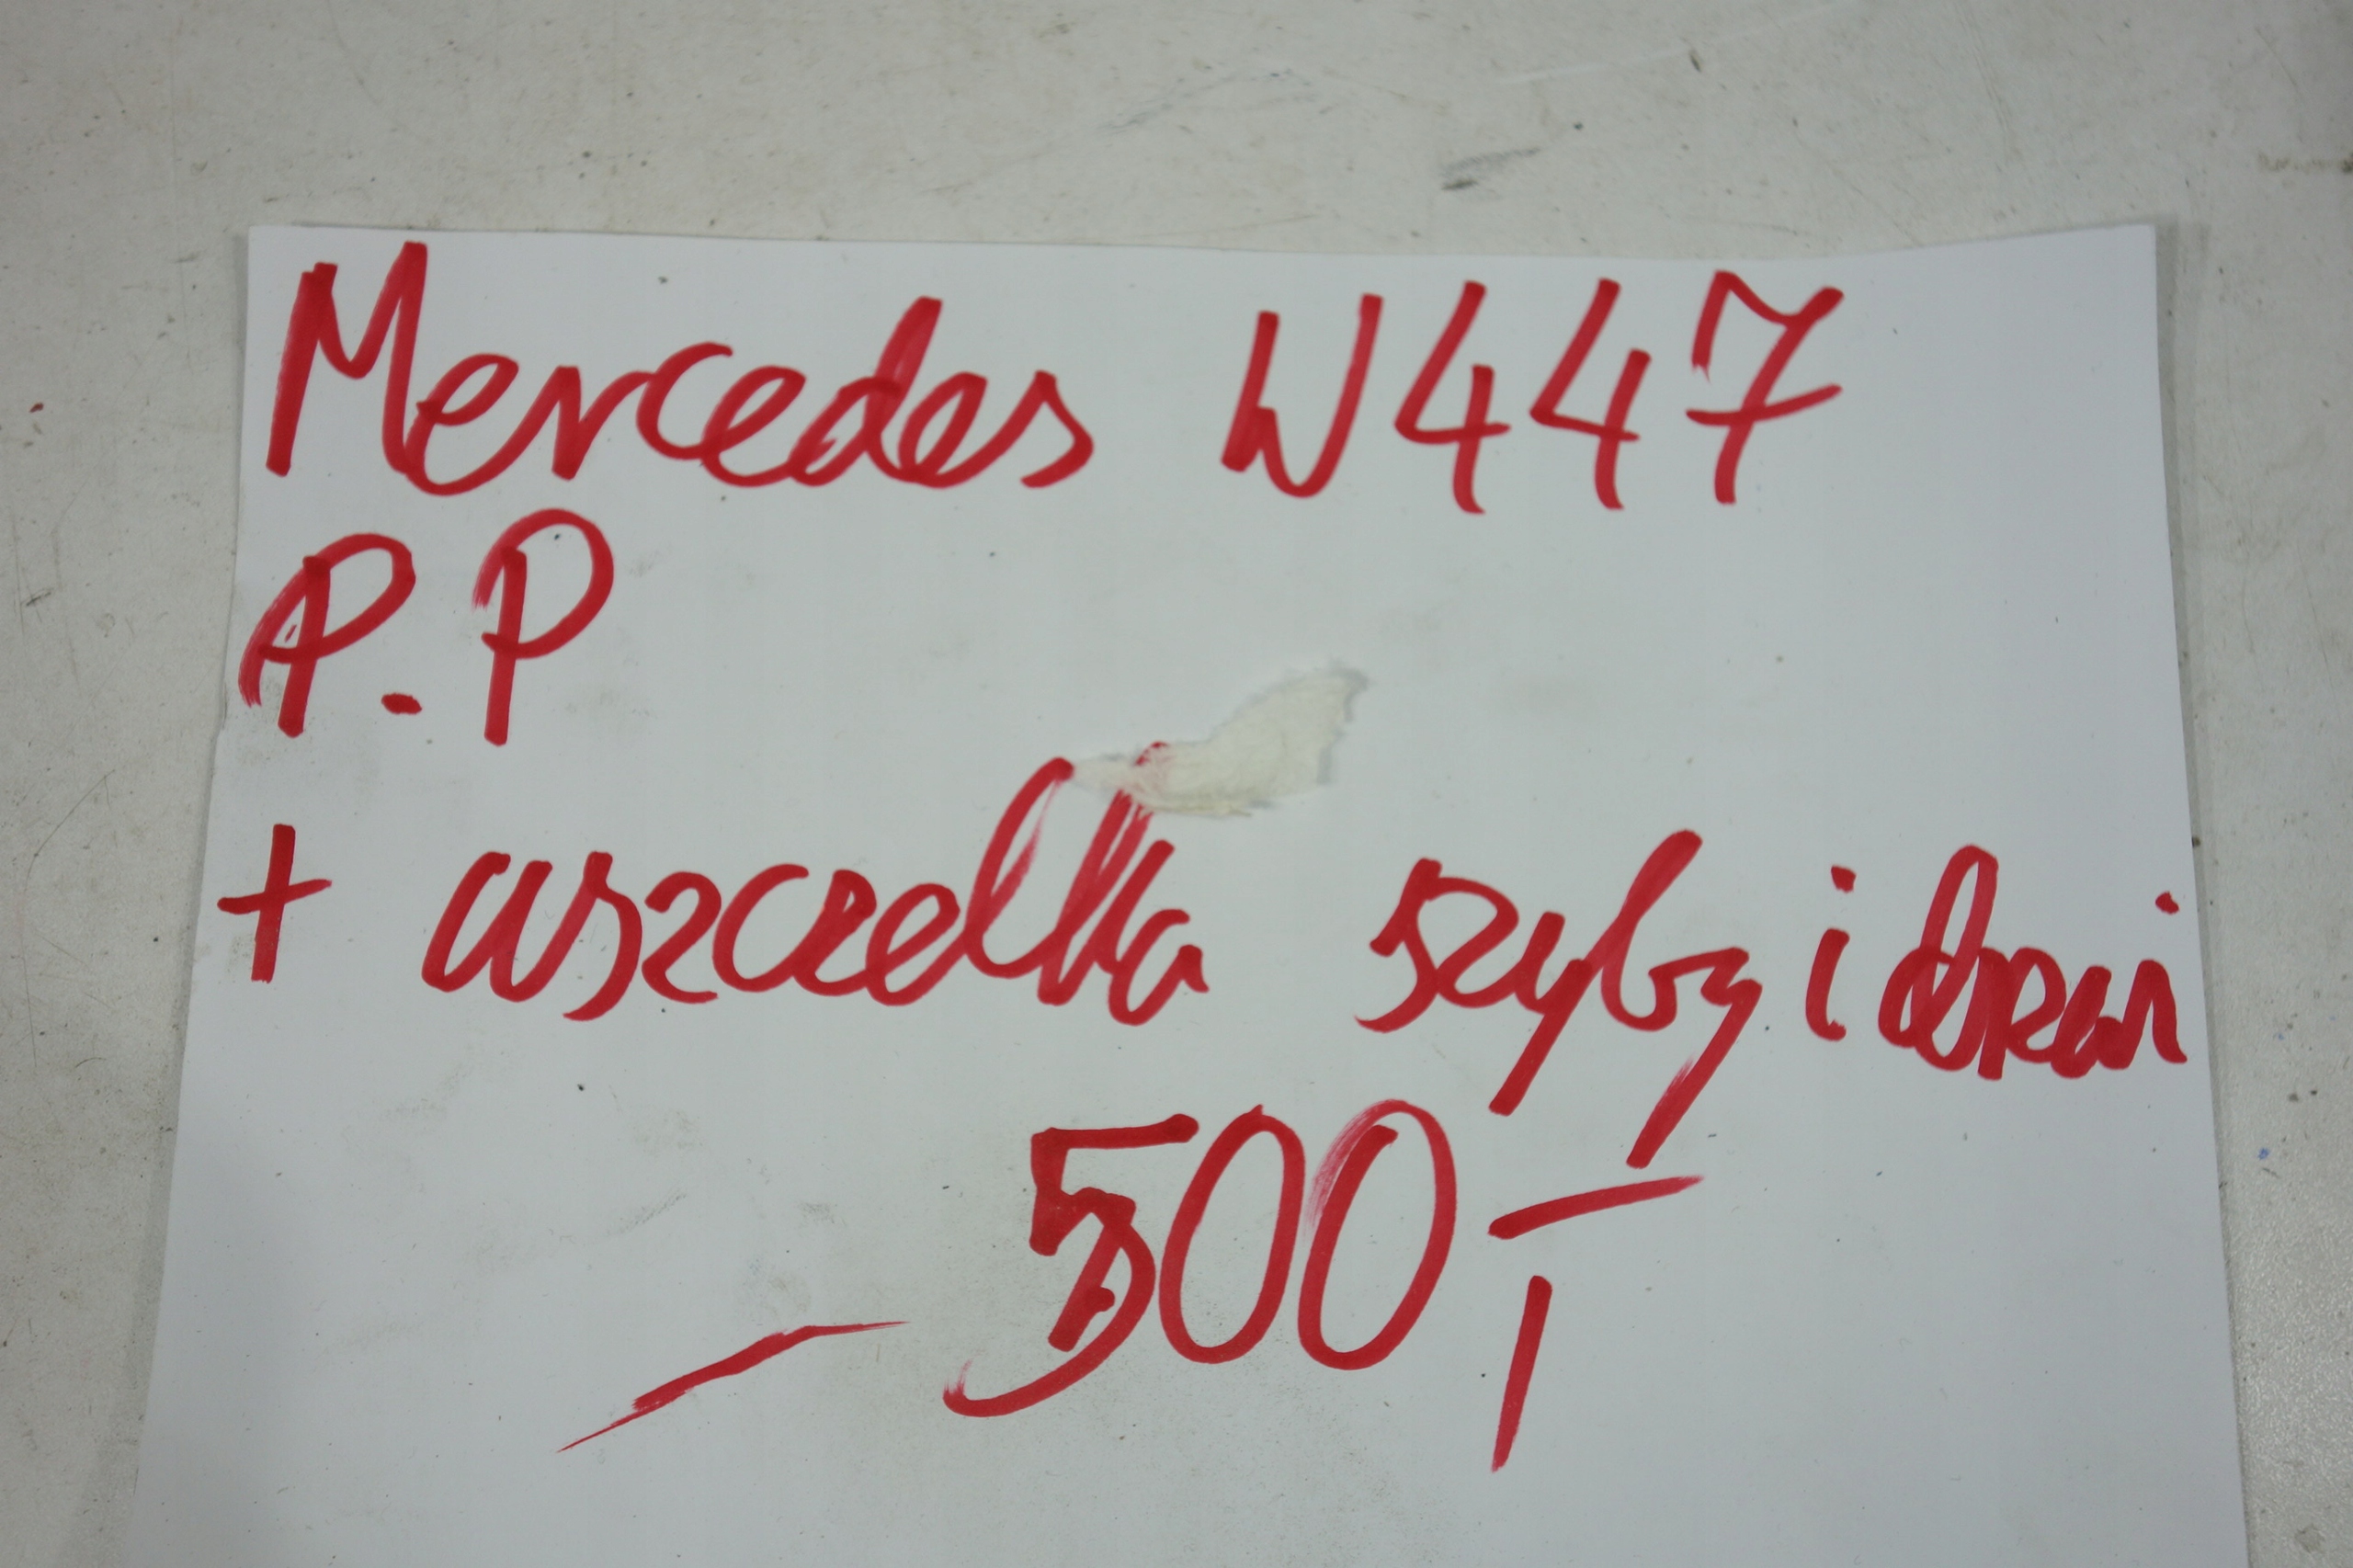 Mercedes W447
P.P
+ uszczelka szyby i drzwi
500